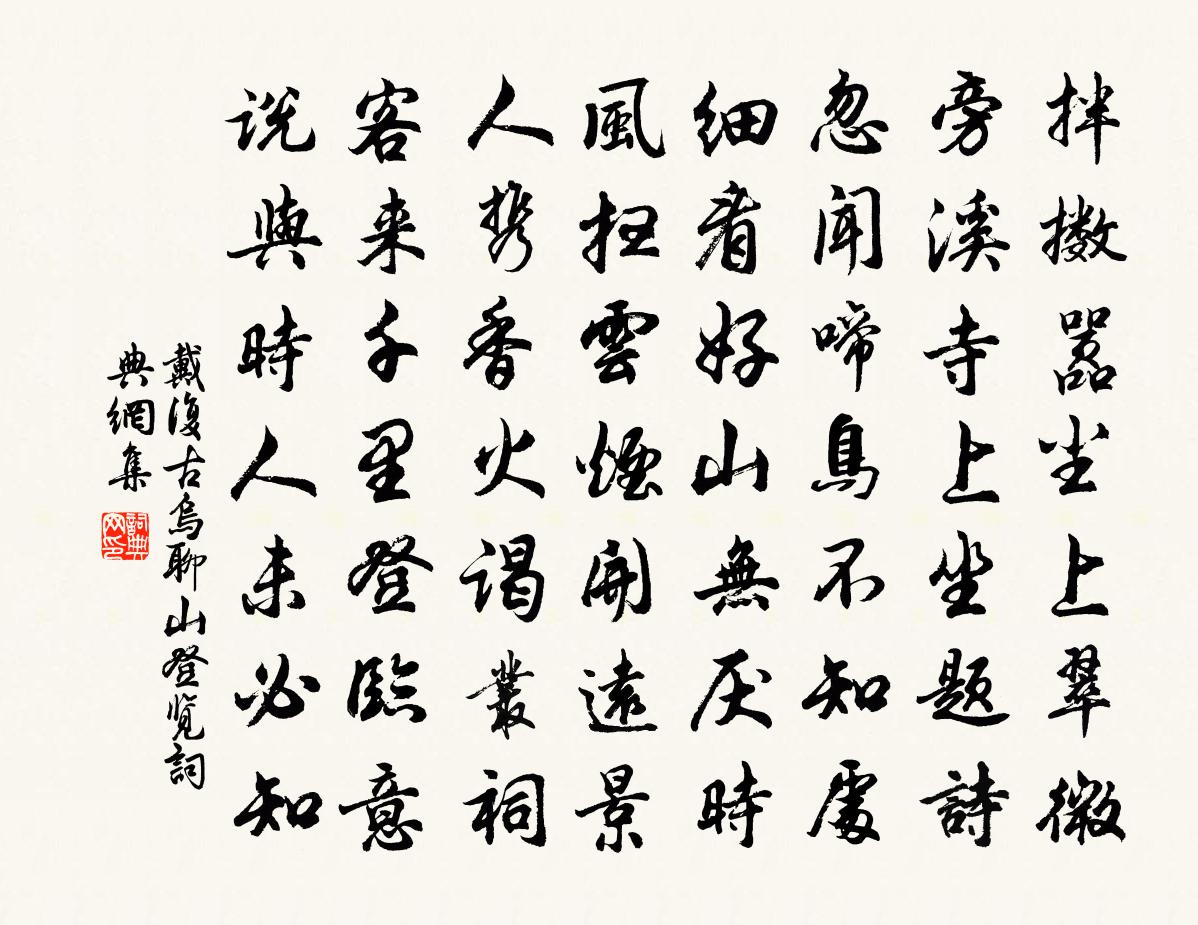 拌擻囂尘上翠微
旁溪寺上坐题詩
忽闻啼鳥不知處
细看好山無厌時
風扫雲煙開遠景
人携香火谒叢祠
客来千里登臨意
说與時人未必知
戴復古烏聊山登览詞
典網集
詞典网印